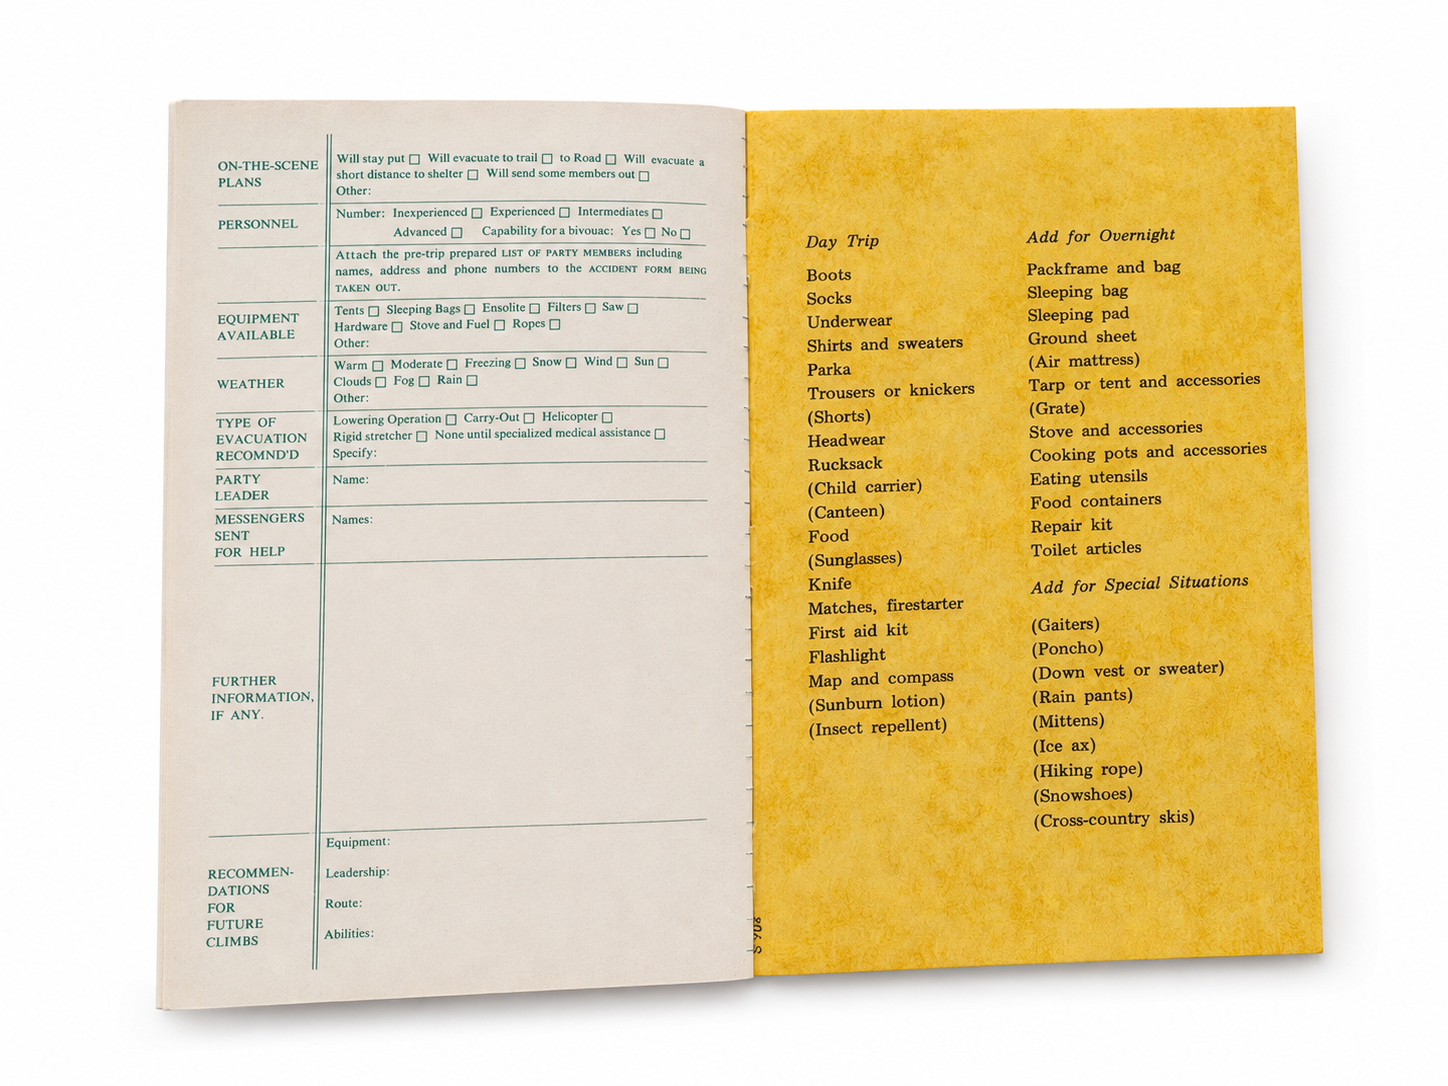 ON-THE-SCENE
PLANS
Will stay put □ Will evacuate to trail □ to Road □ Will evacuate a
short distance to shelter □ Will send some members out □
Other:
PERSONNEL
Number: Inexperienced □ Experienced □ Intermediates □
Advanced □ Capability for a bivouac: Yes □ No □
Attach the pre-trip prepared LIST OF PARTY MEMBERS including
names, address and phone numbers to the ACCIDENT FORM BEING
TAKEN OUT.
EQUIPMENT
AVAILABLE
Tents □ Sleeping Bags □ Ensolite □ Filters □ Saw □
Hardware □ Stove and Fuel □ Ropes □
Other:
WEATHER
Warm □ Moderate □ Freezing □ Snow □ Wind □ Sun □
Clouds □ Fog □ Rain □
Other:
TYPE OF
EVACUATION
RECOMND'D
Lowering Operation □ Carry-Out □ Helicopter □
Rigid stretcher □ None until specialized medical assistance □
Specify:
PARTY
LEADER
Name:
MESSENGERS
SENT
FOR HELP
Names:
FURTHER
INFORMATION,
IF ANY.
RECOMMEN-
DATIONS
FOR
FUTURE
CLIMBS
Equipment:
Leadership:
Route:
Abilities:
Day Trip
Boots
Socks
Underwear
Shirts and sweaters
Parka
Trousers or knickers
(Shorts)
Headwear
Rucksack
(Child carrier)
(Canteen)
Food
(Sunglasses)
Knife
Matches, firestarter
First aid kit
Flashlight
Map and compass
(Sunburn lotion)
(Insect repellent)
Add for Overnight
Packframe and bag
Sleeping bag
Sleeping pad
Ground sheet
(Air mattress)
Tarp or tent and accessories
(Grate)
Stove and accessories
Cooking pots and accessories
Eating utensils
Food containers
Repair kit
Toilet articles
Add for Special Situations
(Gaiters)
(Poncho)
(Down vest or sweater)
(Rain pants)
(Mittens)
(Ice ax)
(Hiking rope)
(Snowshoes)
(Cross-country skis)